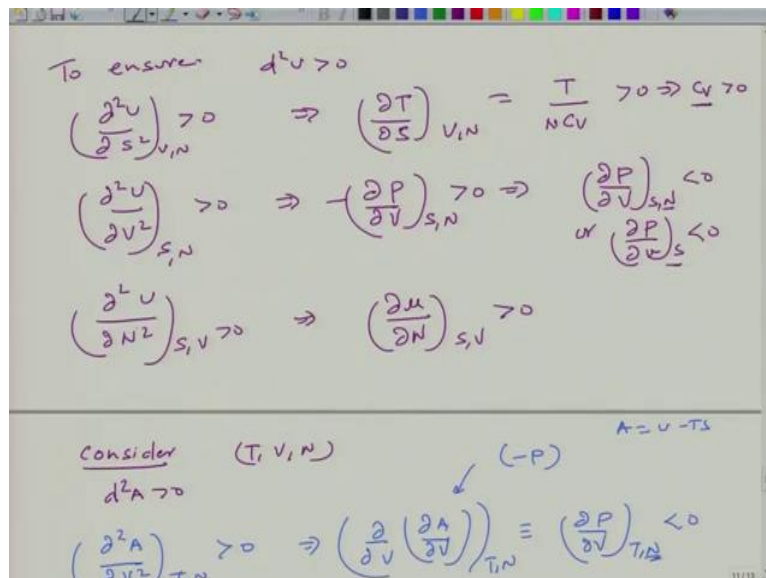 To ensure d²U>0
(∂²U/∂S²)_V,N >0 ⇒ (∂T/∂S)_V,N = T/NCV >0 ⇒ CV >0
(∂²U/∂V²)_S,N >0 ⇒ -(∂P/∂V)_S,N >0 ⇒ (∂P/∂V)_S,N <0
or (∂P/∂v)_S <0
(∂²U/∂N²)_S,V >0 ⇒ (∂μ/∂N)_S,V >0
A = U - TS
Consider (T, V, N) (-P)
d²A >0
(∂²A/∂V²)_T,N >0 ⇒ (∂/∂V (∂A/∂V))_T,N ≡ (∂P/∂V)_T,N <0